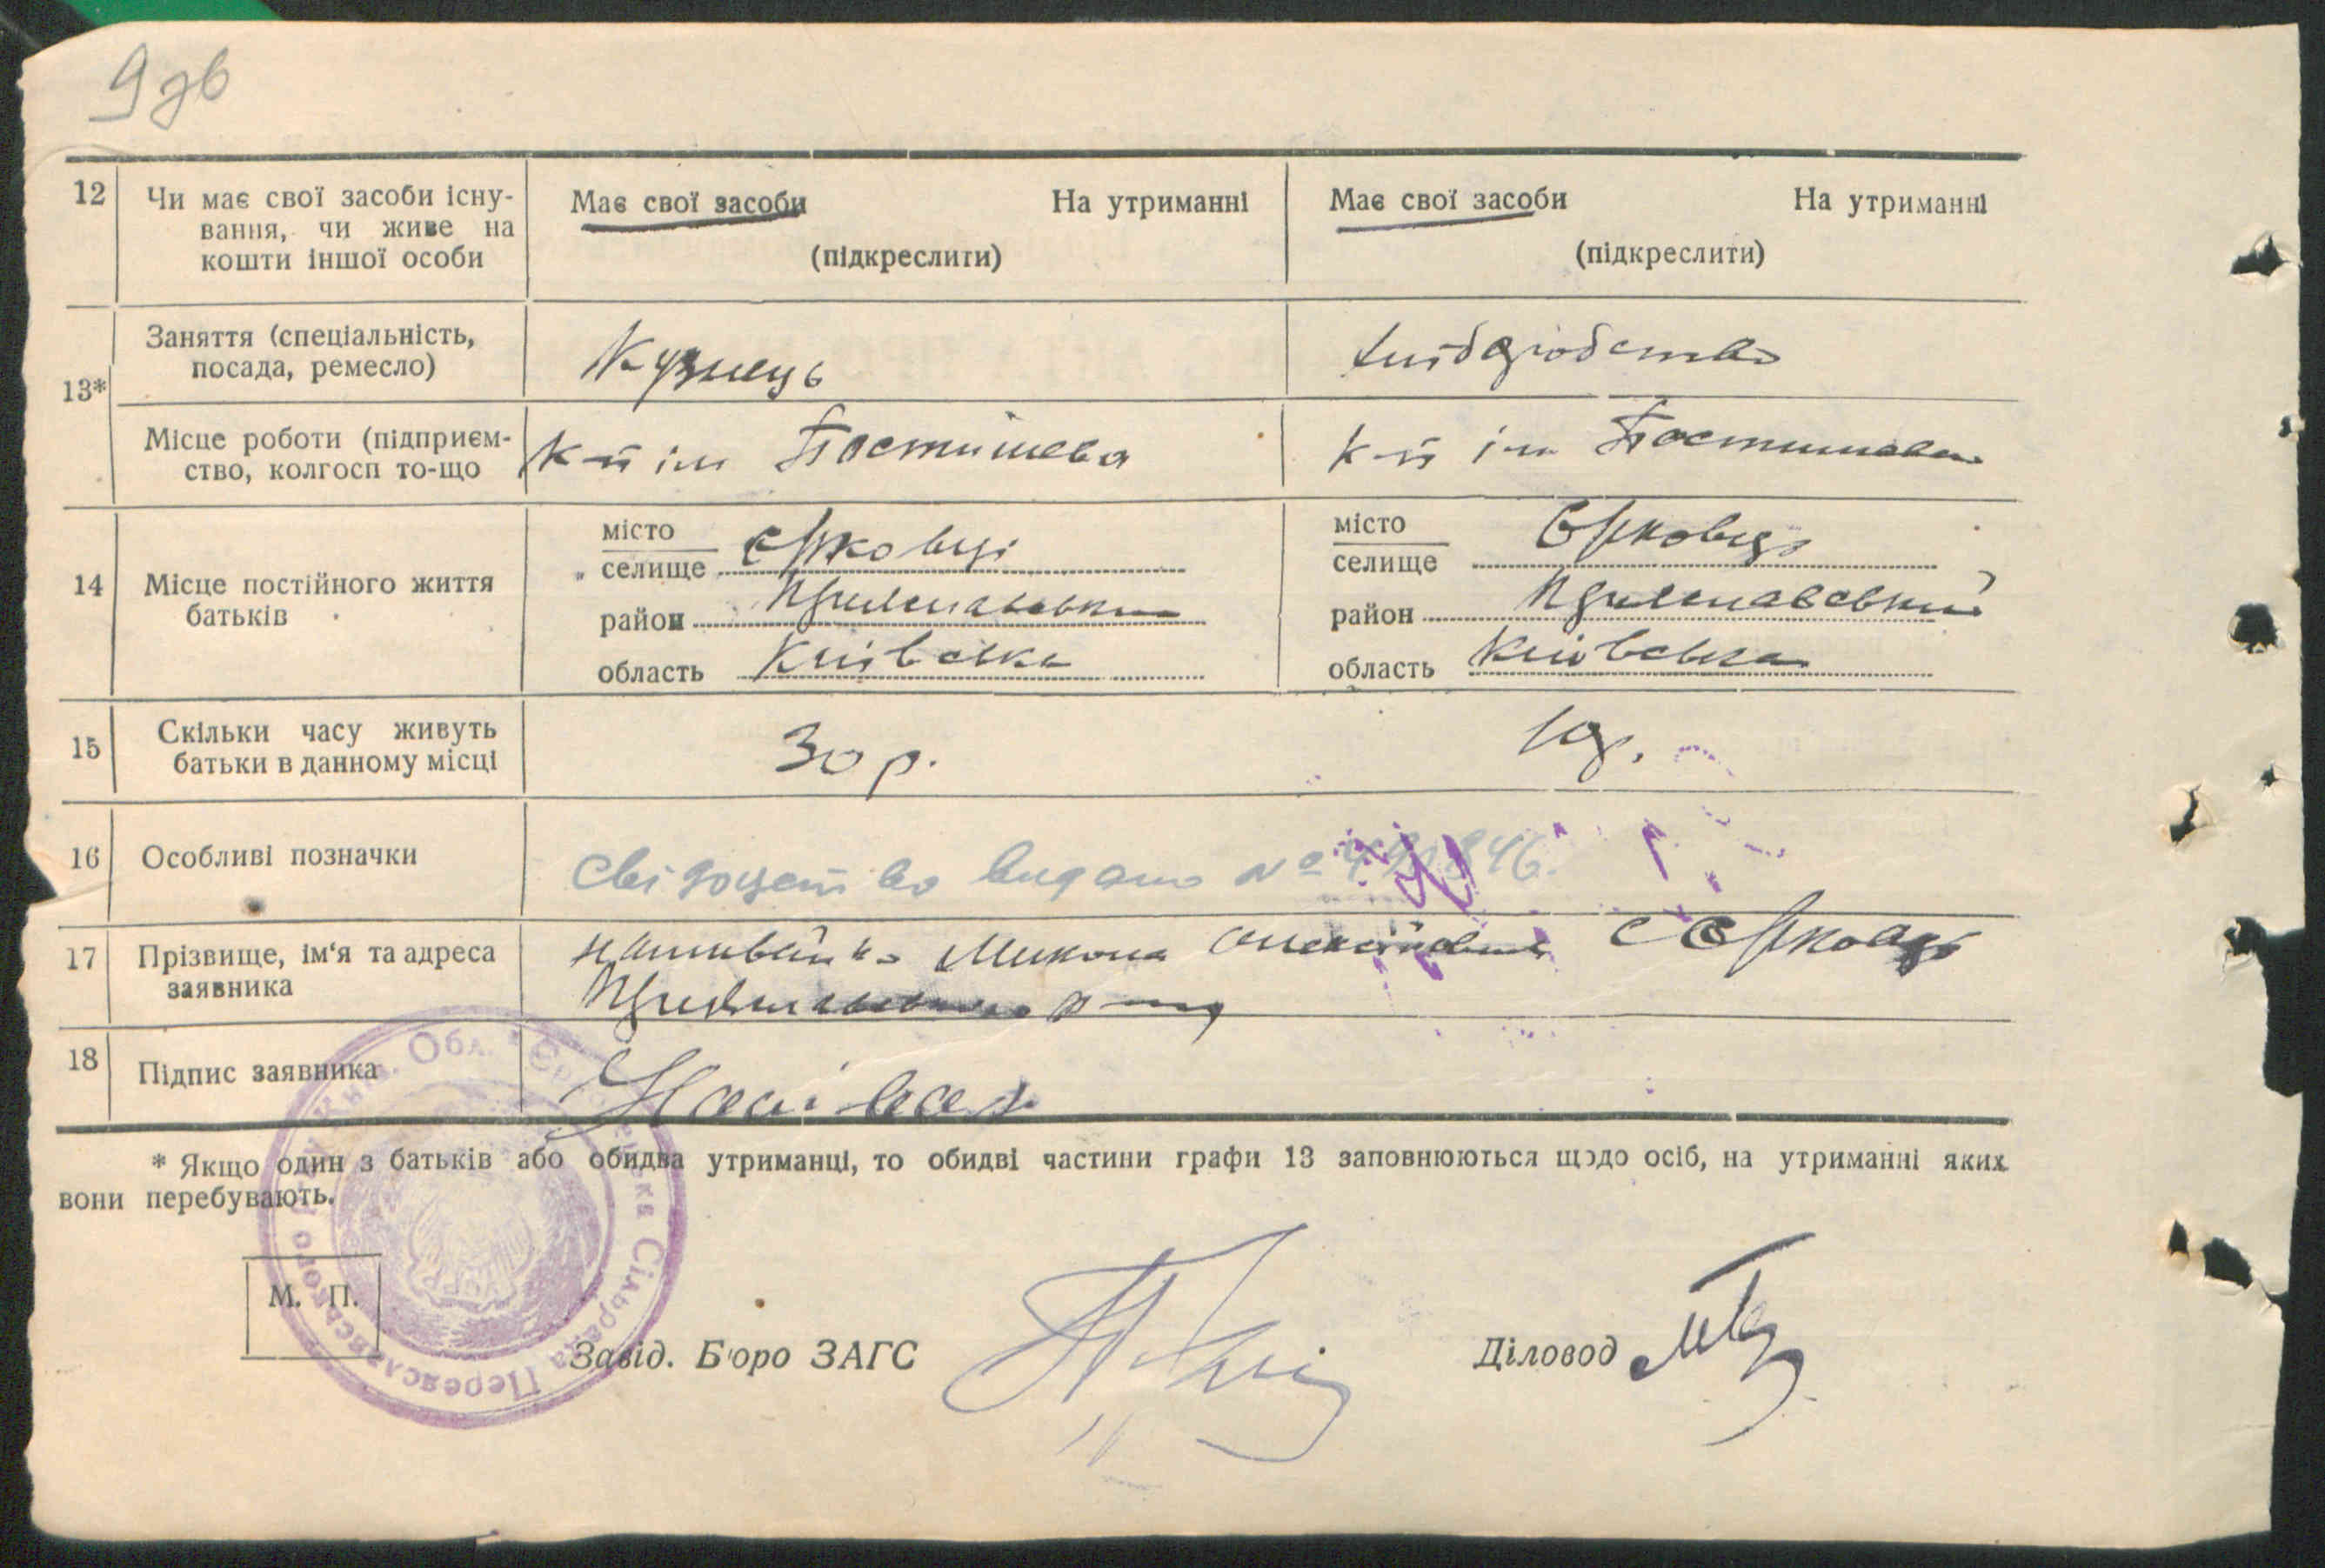 9 зв
12 Чи має свої засоби існу- Має свої засоби На утриманні Має свої засоби На утриманні
вання, чи живе на
кошти іншої особи (підкреслити) (підкреслити)
13* Заняття (спеціальність,
посада, ремесло) Кузнець
Місце роботи (підприєм-
ство, колгосп то-що К-п ім Постишева К-п ім Постишева
14 Місце постійного життя
батьків
місто
селище Єрковці
район
область Київська
місто
селище Єрковці
район
область Київська
15 Скільки часу живуть
батьки в данному місці 30 р. 10 р.
16 Особливі позначки Свідоцтво видано №
17 Прізвище, ім'я та адреса
заявника Микола с Єрковці
18 Підпис заявника
* Якщо один з батьків або обидва утриманці, то обидві частини графи 13 заповнюються щодо осіб, на утриманні яких
вони перебувають.
М. П.
Обл. Сільрада Переяславського
Завід. Б'юро ЗАГС Діловод